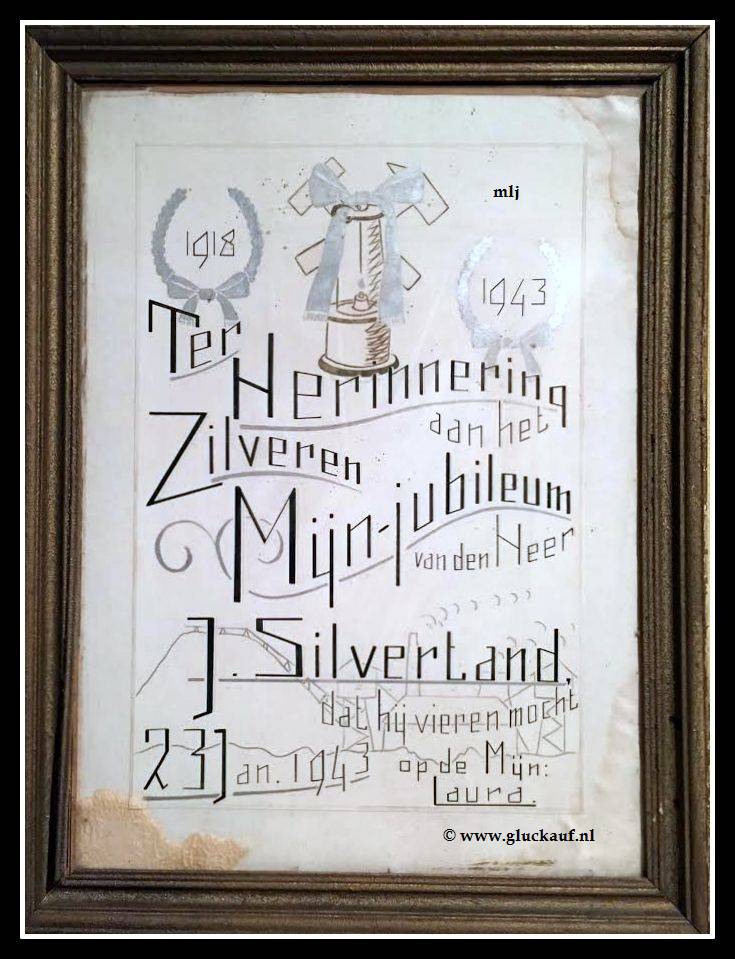 mlj
1918
1943
Ter
Herinnering
aan het
Zilveren
Mijn-jubileum
van den Heer
J. Silvertand,
dat hij vieren mocht
23 Jan. 1943 op de Mijn:
Laura.
© www.gluckauf.nl